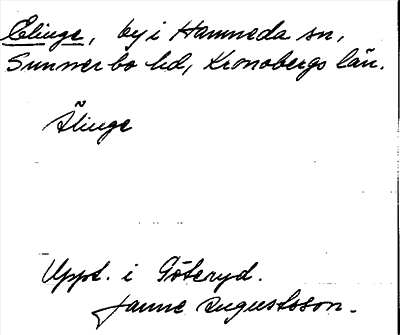 Elinge, by i Hamneda sn,
Sunnerbo hd, Kronobergs län.
Älinge
Uppt. i Göteryd.
Janne Augustsson.